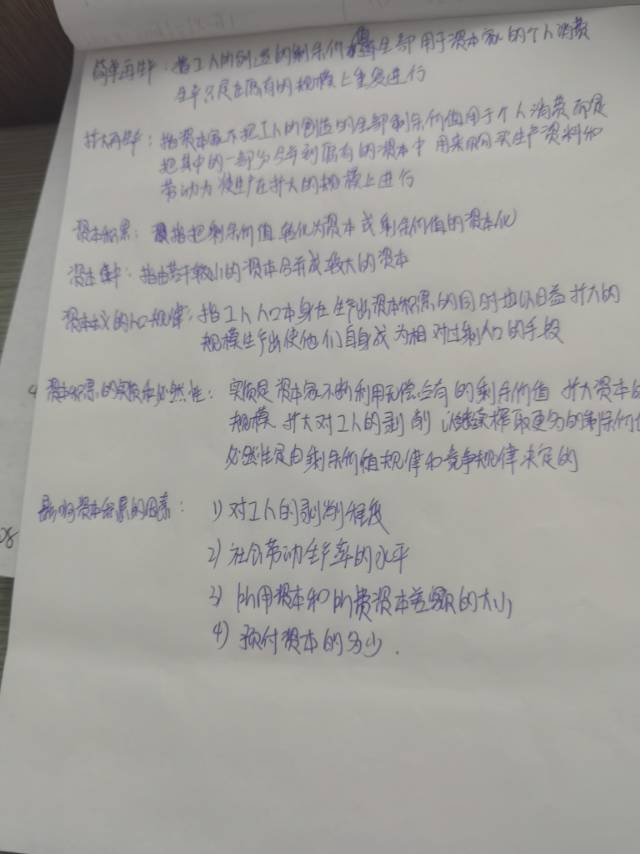 简单再生产：指工人的创造的剩余价值全部用于资本家的个人消费
生产只是在原有的规模上重复进行
扩大再生产：指资本家不把工人的创造的全部剩余价值用于个人消费而是
把其中的一部分合并到原有的资本中 用来购买生产资料和
劳动力使生产在扩大的规模上进行
资本积累：指把剩余价值转化为资本或剩余价值的资本化
资本集中：指由若干较小的资本合并成较大的资本
资本主义的人口规律：指工人人口本身在生产出资本积累的同时也以日益扩大的
规模生产出使他们自身成为相对过剩人口的手段
4 资本积累的实质和必然性：实质是资本家不断利用无偿占有的剩余价值 扩大资本的
规模 扩大对工人的剥削 以继续榨取更多的剩余价值
必然性是由剩余价值规律和竞争规律决定的
影响资本积累的因素：1) 对工人的剥削程度
2) 社会劳动生产率的水平
3) 所用资本和所费资本差额的大小
4) 预付资本的多少.
08